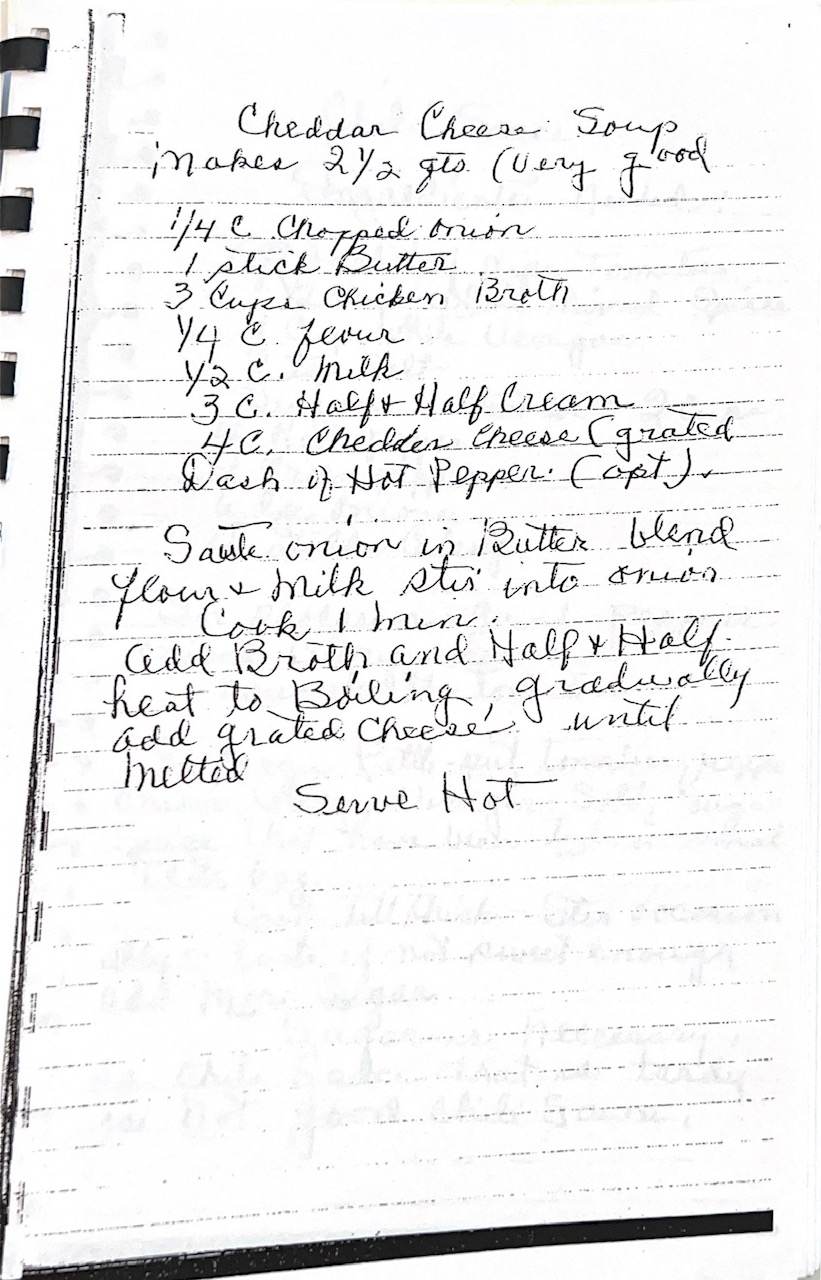 Cheddar Cheese Soup
Makes 2 1/2 qts (Very good
1/4 C Chopped onion
1 stick Butter
3 Cups Chicken Broth
1/4 C flour
1/2 C. Milk
3 C. Half & Half Cream
4 C. Chedder Cheese (grated
Dash of Hot Pepper. (opt).
Saute onion in Butter blend
flour & Milk stir into onion
Cook 1 min.
add Broth and Half & Half.
heat to Boiling, gradually
add grated Cheese until
melted
Serve Hot